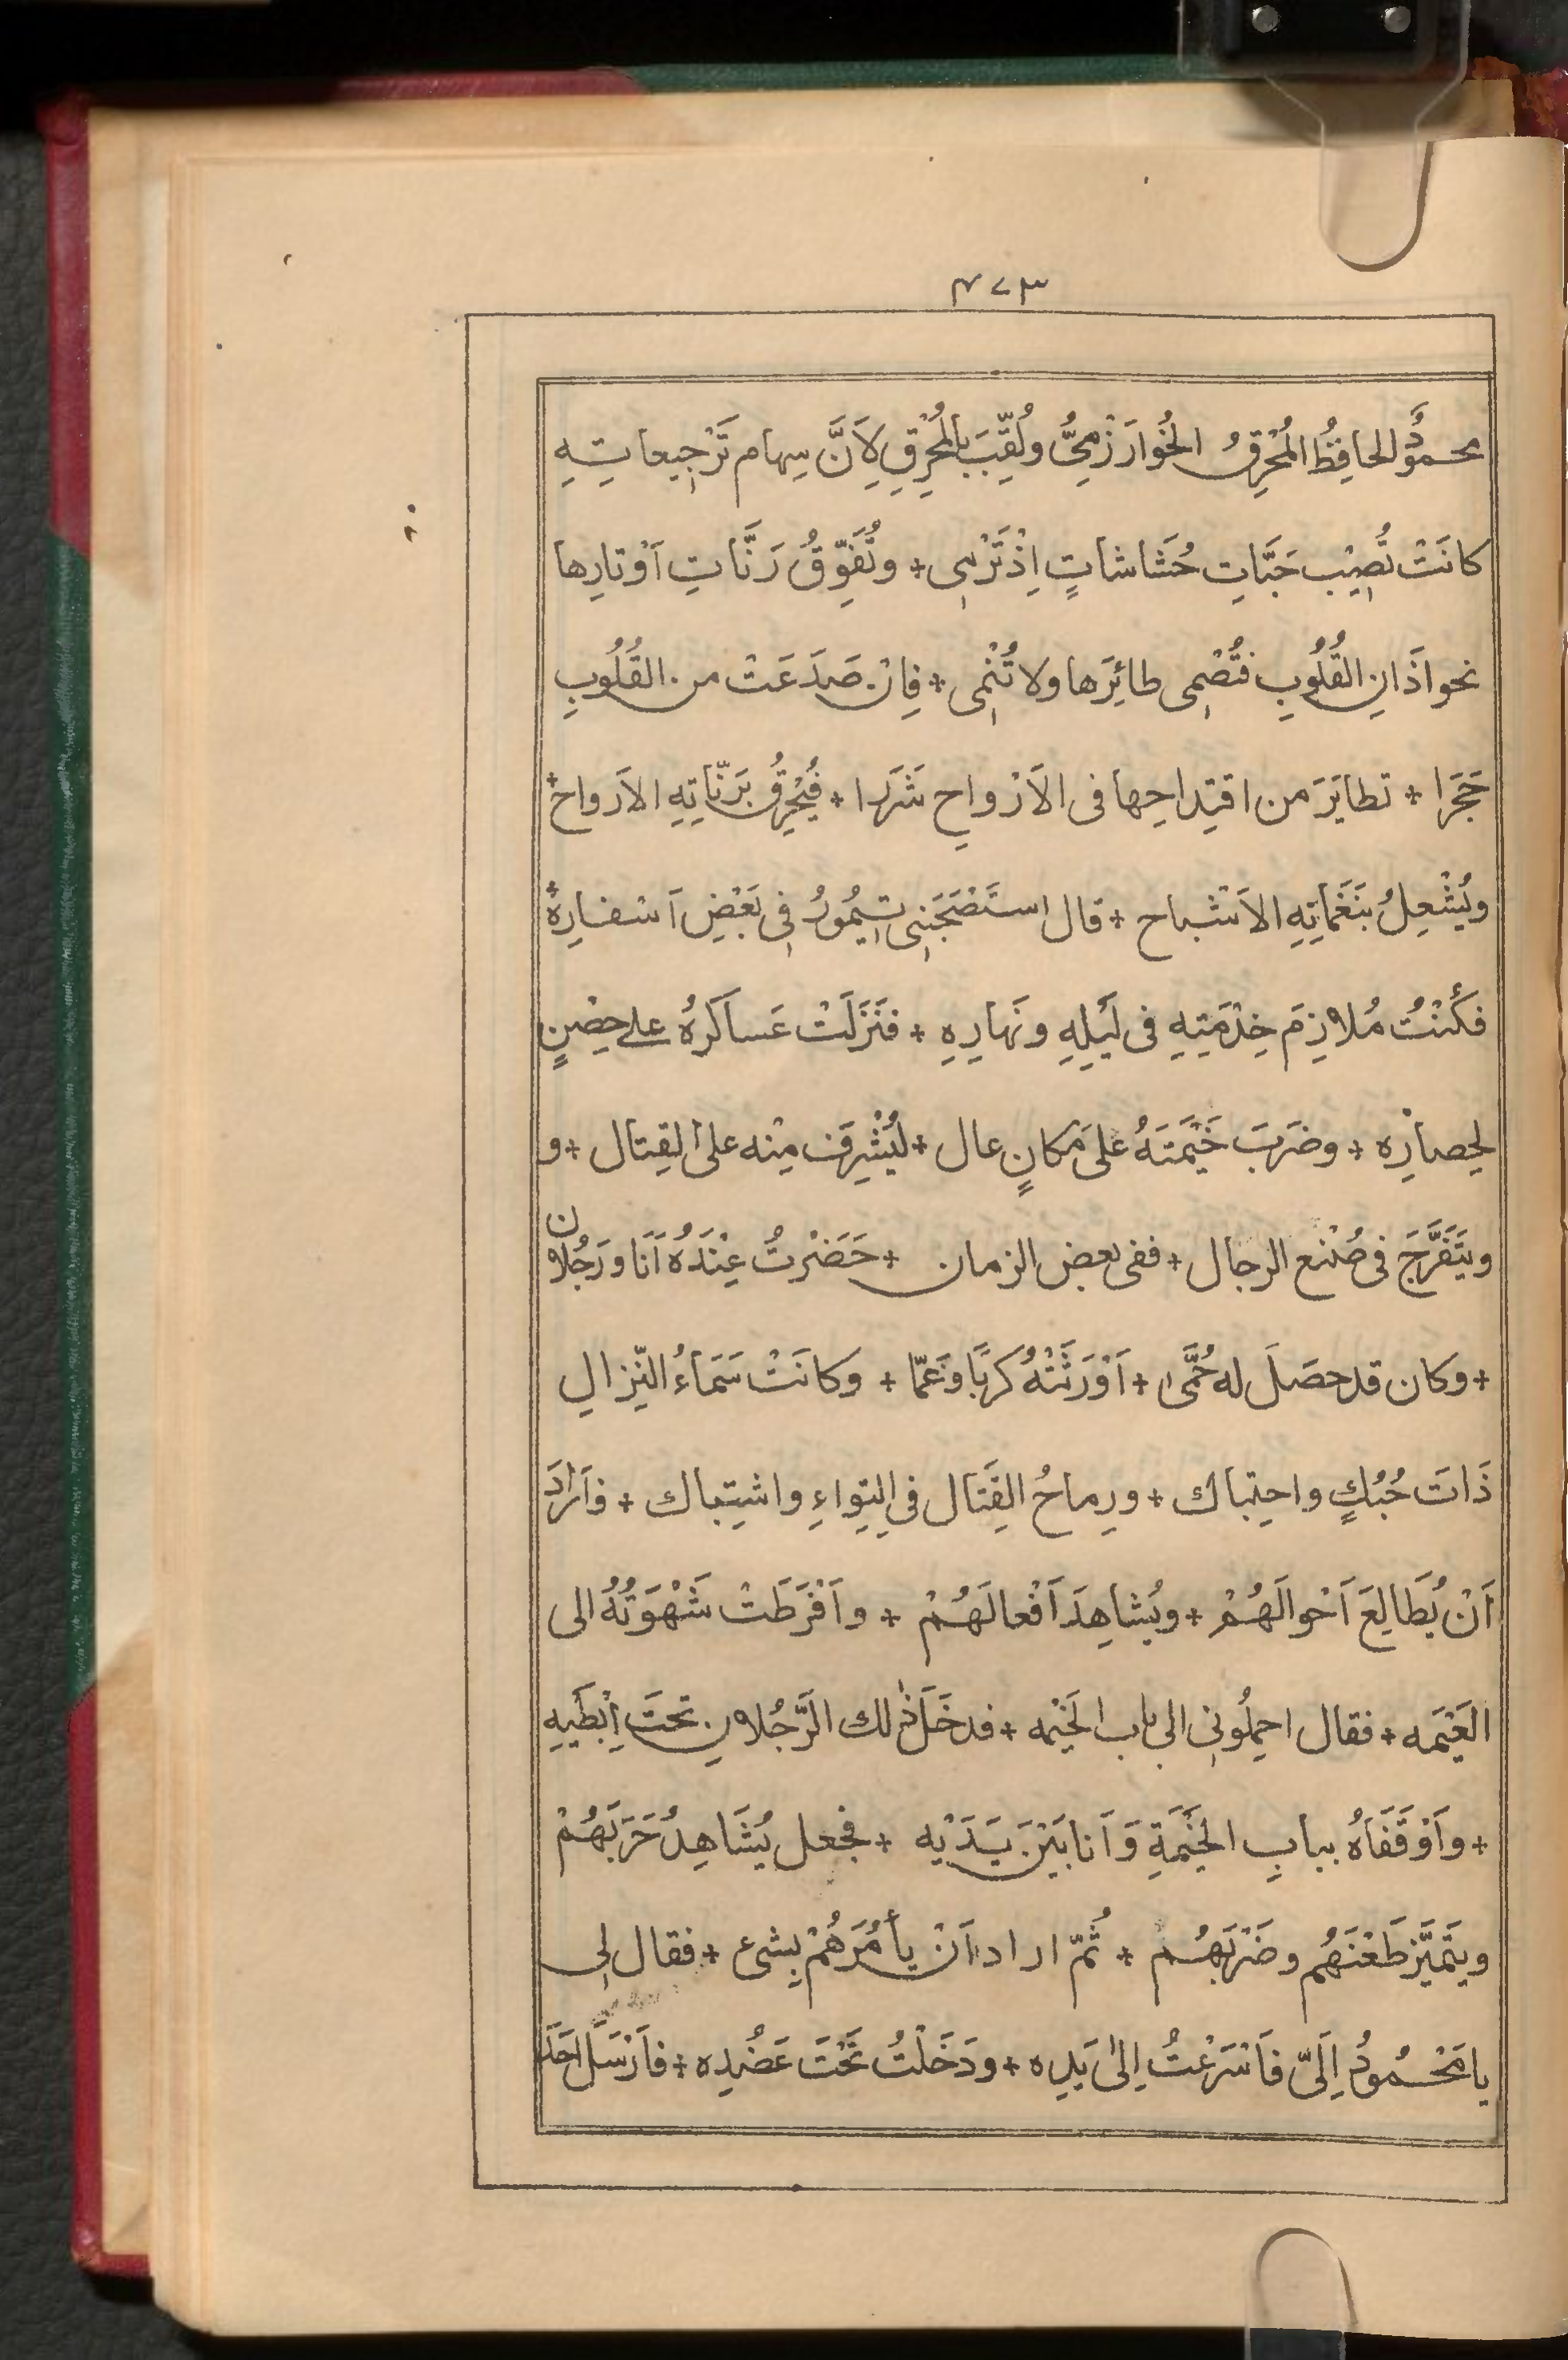 ٣٧٣
محمودُ الحافِظُ المُحْرِقُ الخُوارَزْمِىُّ ولُقِّبَ بالمُحْرِقِ لِاَنَّ سِهام تَرْجِيعاتِهِ
كانَتْ تُصِيْب حَبَّاتِ حُشاشاتٍ اِذْ تَرْمِى + وتُفَوِّقُ رَنَّاتِ اَوْتارِها
نحو اَذانِ القُلُوبِ فتُصْمِى طائِرَها ولا تُنْمِى + فاِنْ صَدَعَتْ من القُلُوبِ
حَجَرًا + تطايَرَ من اقتِداحِها فى الاَرْواحِ شَرَرا + فيُحْرِقُ بَرَنّاتِهِ الاَرواح +
ويُشْعِلُ بنَغَماتِهِ الاَشْباح + قال استَصْحَبَنِى تِيمُورُ فِى بَعْضِ اَسْفارِهْ +
فكُنْتُ مُلازِمَ خِدْمَتِهِ فى لَيْلِهِ ونَهارِهِ + فنَزَلَتْ عَساكَرُهُ على حِصْنٍ
لحِصارِه + وضَرَبَ خَيْمَتَهُ على مَكانٍ عال + ليُشْرِفَ مِنْه على القِتال + و
ويَتَفَرَّجَ فى صُنْع الرجال + ففى بعض الزمان + حَضَرْتُ عِنْدَهُ اَنَا ورَجُلان
+ وكان قد حصَلَ له حُمَّى + اَوْرَثَتْهُ كربًا وغَمّا + وكانَتْ سَمَاءُ النِّزالِ
ذَاتَ حُبُكٍ واحتِباك + ورِماحُ القِتَال فى الِتواءِ واشتِباك + فاَرادَ
اَنْ يُطَالِعَ اَحْوالَهُمْ + ويُشاهِدَ اَفْعالَهُمْ + واَفْرَطَتْ شَهْوَتُهُ الى
الغَيْمَه + فقال احمِلُونِى الى باب الخَيْمه + فدخَلَ ذلك الرَّجُلانِ تحتَ اِبْطَيهِ
+ واَوْقَفَاهُ ببابِ الخَيْمَةِ وَاَنا بَيْنَ يَدَيْه + فجعل يُشَاهِدُ حَرَبَهُمْ
ويتَمَيَّز طَعْنَهُم وضَرْبَهُم + ثُمّ اراد اَنْ يأمُرَهُمْ بِشىء + فقال لِى
يا مَحْمُودُ اِلَىَّ فَاَسْرَعْتُ اِلىٰ يَدِه + ودَخَلْتُ تَحْتَ عَضُدِه + فاَرْسَلَ اَحَدَ